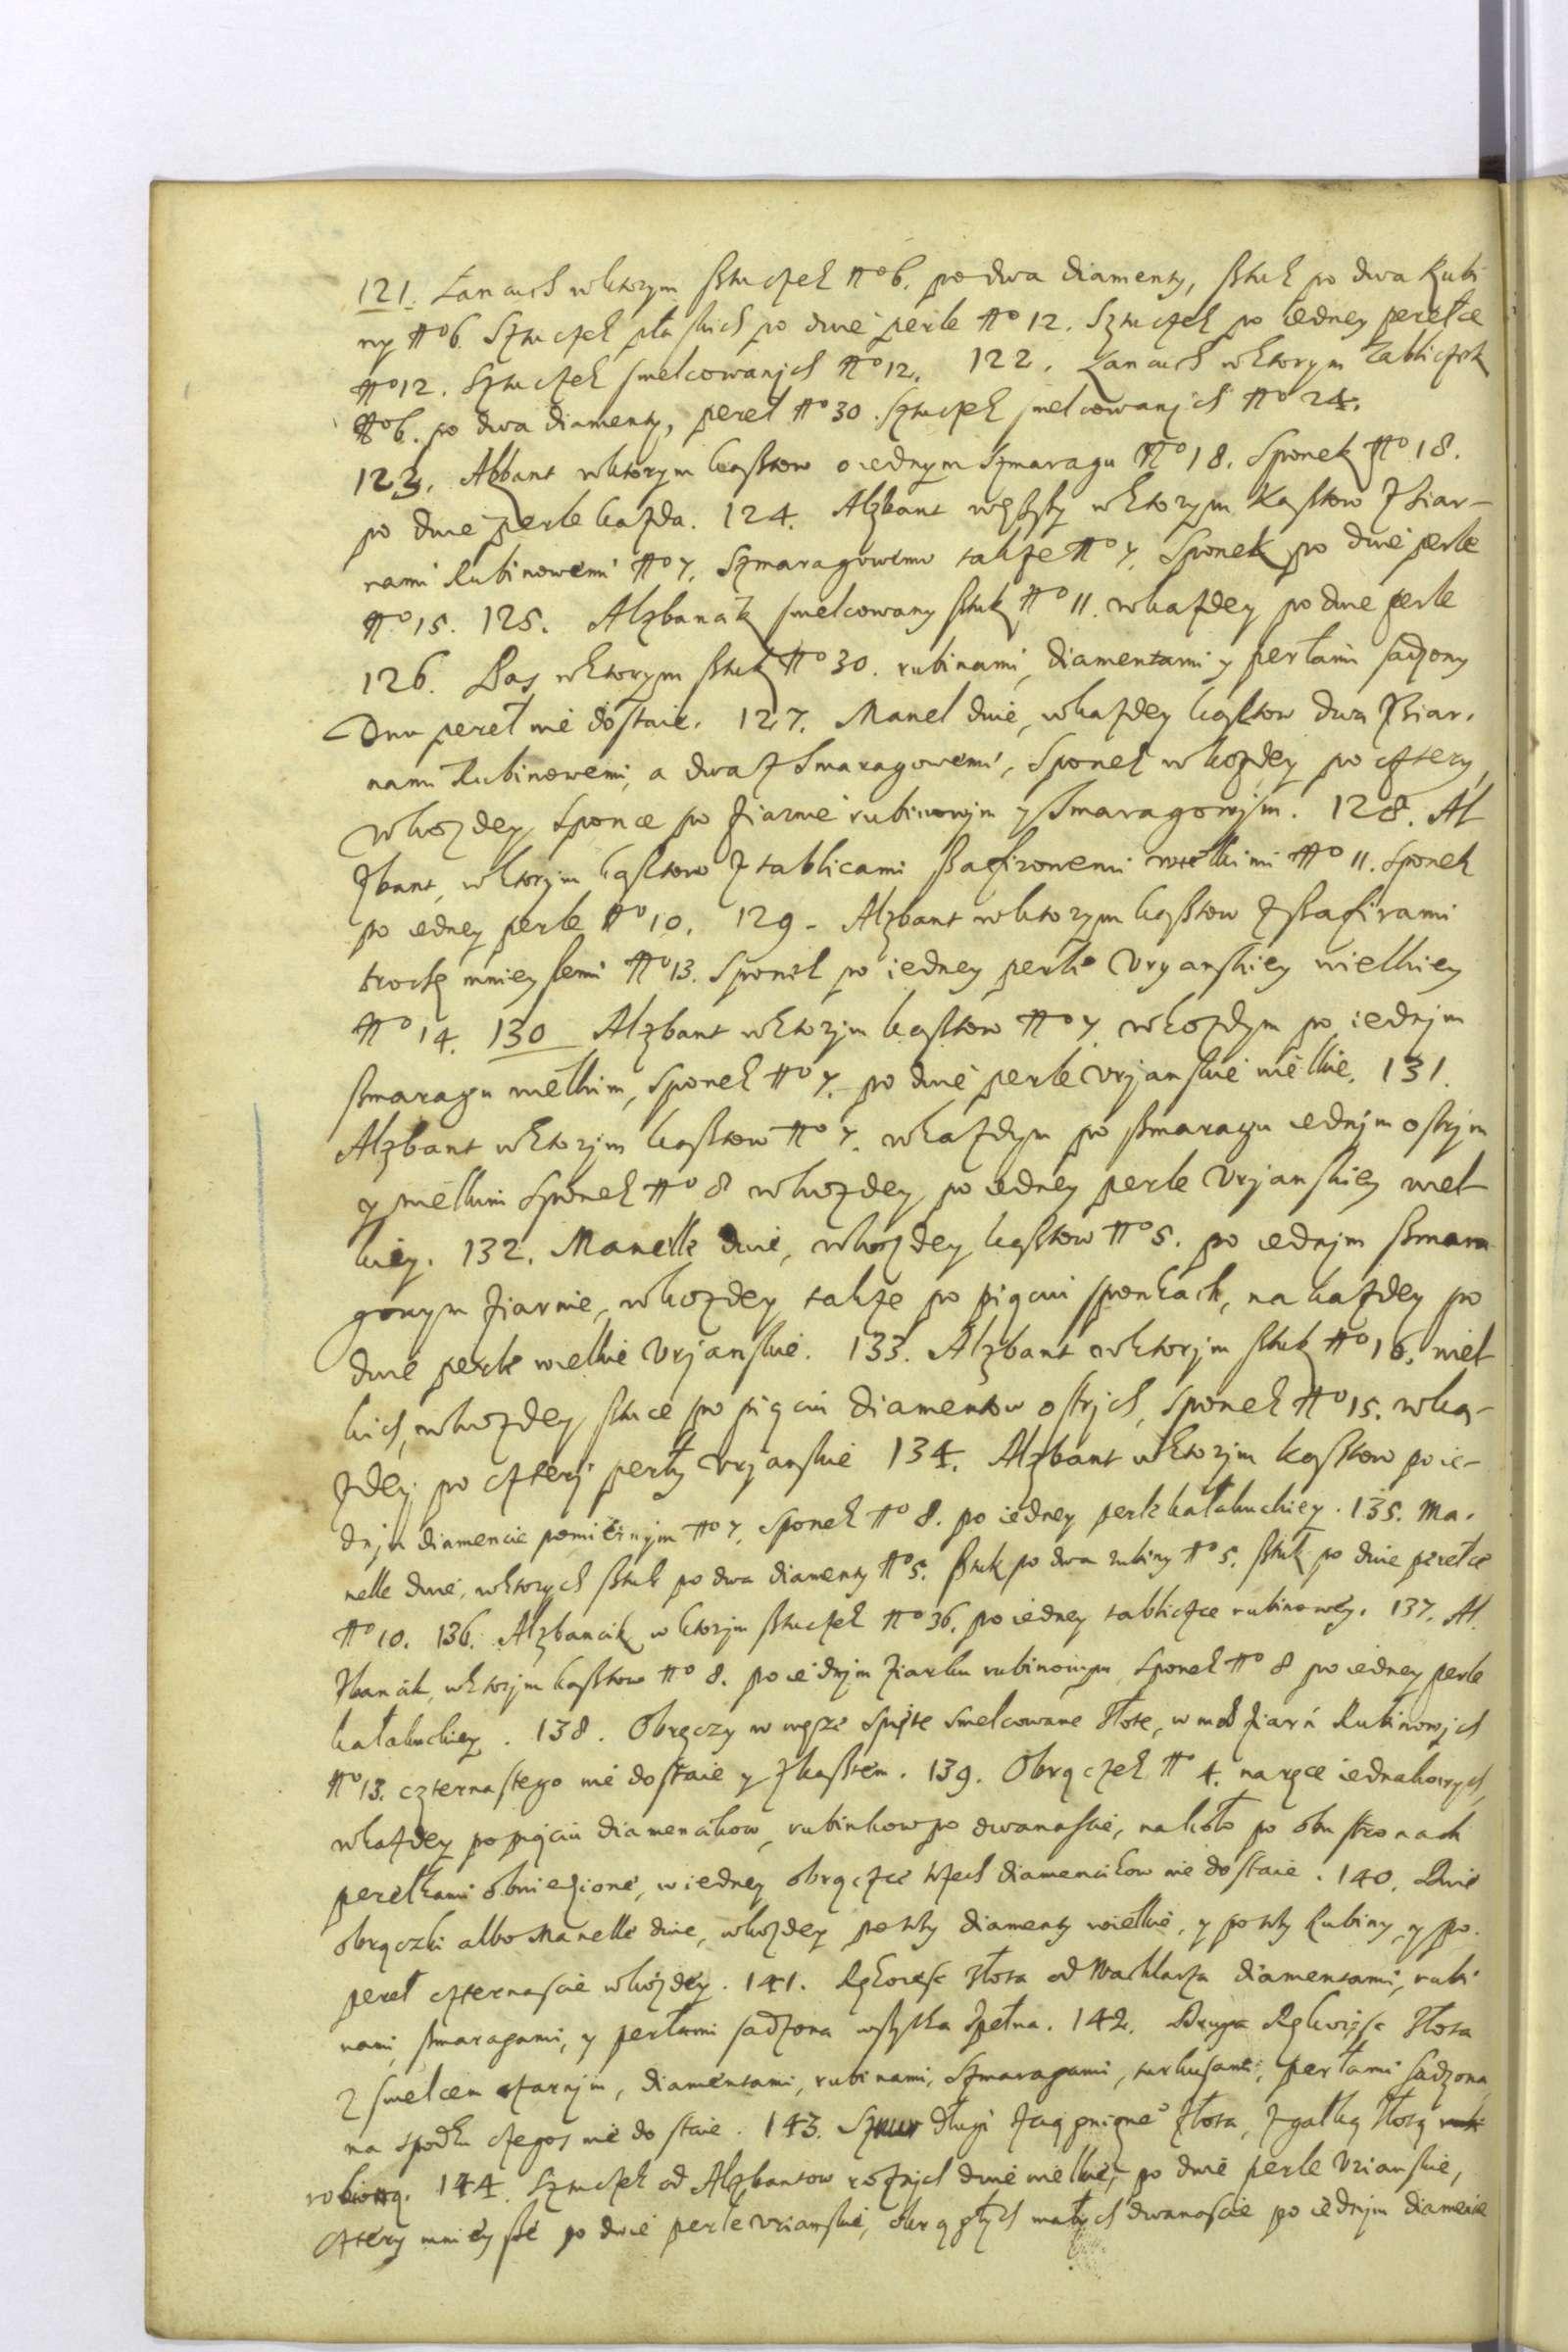 121. Łancuch wktorym sztuczek No 6. po dwa diamenty, sztuk po dwa Rubi
ny No 6 Sztuczek płaskich po dwie perle No 12. Sztuczek po iedney perełce
No 12. Sztuczek smelcowanych No 12. 122. Łancuch wktorym Tabliczek
No 6. po dwa diamenty, pereł No 30. Sztuczek smelcowanych No 24.
123. Alzbant wktorym kasztow o iednym Szmaragu No 18. Sponek No 18.
po dwie perle każda. 124. Alzbant węższy wktorym Kasztow z ziar-
nami Rubinowemi No 7. Szmaragowemi także No 7. Sponek po dwie perle
No 15. 125. Alzbancik smelcowany sztuk No 11. wkażdey po dwie perle
126. Pas wktorym sztuk No 30. rubinami, diamentami y perłami sadzony
Dwu pereł nie dostaie. 127. Manel dwie, wkażdey kasztow dwa z ziar-
nami Rubinowemi, a dwa z Smaragowemi, Sponek wkożdey po cztery,
wkożdey Sponce po ziarnie rubinowym y Smaragowym. 128. Al
zbant, wktorym kasztow z tablicami szafirowemi wielkimi No 11. Sponek
po iedney perle No 10. 129. Alzbant wktorym kasztow z szafirami
trochę mnieyszemi No 13. Sponek po iedney perle Uryanskiey wielkiey
No 14. 130 Alzbant wktorym kasztow No 7. wkożdym po iednym
szmaragu wielkim, sponek No 7. po dwie perle Uryanskie wielkie. 131.
Alzbant wktorym kasztow No 7. wkażdym po szmaragu iednym ostrym
y wielkim Sponek No 8 wkożdey po iedney perle Uryanskiey wiel
kiey. 132. Manelle dwie, wkożdey kasztow No 5. po iednym szmara
gowym ziarnie, wkożdey także po piąciu sponkach, na każdey po
dwie perle wielkie Uryanskie. 133. Alzbant wktorym sztuk No 16. wiel
kich, wkożdey sztuce po piąciu diamentow ostrych, sponek No 15. wka-
żdey po cztery perły Uryanskie 134. Alzbant wktorym kasztow po ie-
dnym diamencie pomiernym No 7. sponek No 8. po iedney perle kałakuckiey. 135. Ma-
nelle dwie, wktorych sztuk po dwa diamenty No 5. sztuk po dwa rubiny No 5. sztuk po dwie perełce
No 10. 136. Alzbancik wktorym sztuczek No 36. po iedney tabliczce rubinowey. 137. Al
zbancik, wktorym kasztow No 8. po iednym ziarku rubinowym sponek No 8 po iedney perle
kałakuckiey. 138. Obręczy w węże spięte smelcowane złote, w nich ziarn Rubinowych
No 13. czternastego nie dostaie y z kasztem. 139. Obrączek No 4. na ręce iednakowych,
wkażdey po piąciu diamencikow, rubinkow po dwanascie, nakoło po obu stronach
perełkami obwiedzione, w iedney obrączce trzech diamencikow nie dostaie. 140. Dwie
obrączki albo Manelle dwie, wkożdey po trzy diamenty wielkie, y po trzy Rubiny, y po
pereł czternascie wkożdey. 141. Rękoiesc złota od Wachlarza diamentami, rubi
nami, szmaragami, y perłami sadzona wszytka zpełna. 142. Druga Rękoięsc złota
z smelcem czarnym, diamentami, rubinami, Szmaragami, turkusami, perłami sadzona,
na spodku czegos nie dostaie. 143. Sznur długi złota, z gałką złotą
robioną. 144. Sztuczek od Alzbantow rożnych dwie wielkie, po dwie perle Urianskie,
cztery mnieysze po dwie perle urianskie, okrągłych małych dwanascie po iednym diamencie